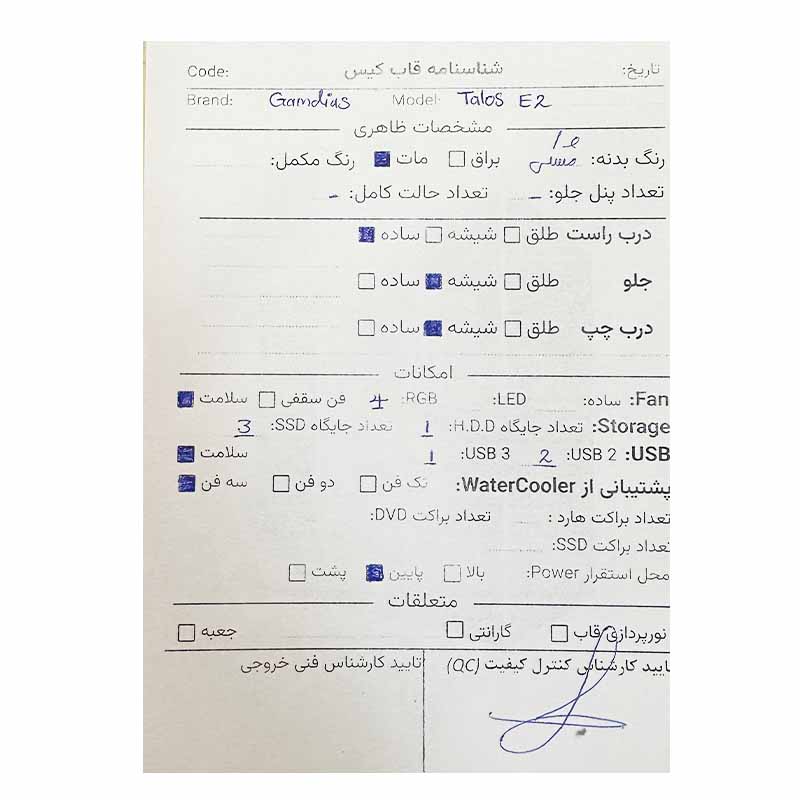 تاریخ: شناسنامه قاب کیس Code:
Brand: Gamdias Model: Talos E2
مشخصات ظاهری
رنگ بدنه: مشکی براق مات رنگ مکمل:
تعداد پنل جلو: - تعداد حالت کامل: -
درب راست طلق شیشه ساده
جلو طلق شیشه ساده
درب چپ طلق شیشه ساده
امکانات
Fan: ساده: LED: RGB: 4 فن سقفی سلامت
Storage: تعداد جایگاه H.D.D: 1 تعداد جایگاه SSD: 3
USB: USB 2: 2 USB 3: 1 سلامت
پشتیبانی از WaterCooler: تک فن دو فن سه فن
تعداد براکت هارد: تعداد براکت DVD:
تعداد براکت SSD:
محل استقرار Power: بالا پایین پشت
متعلقات
نورپردازی قاب گارانتی جعبه
تایید کارشناس کنترل کیفیت (QC) تایید کارشناس فنی خروجی